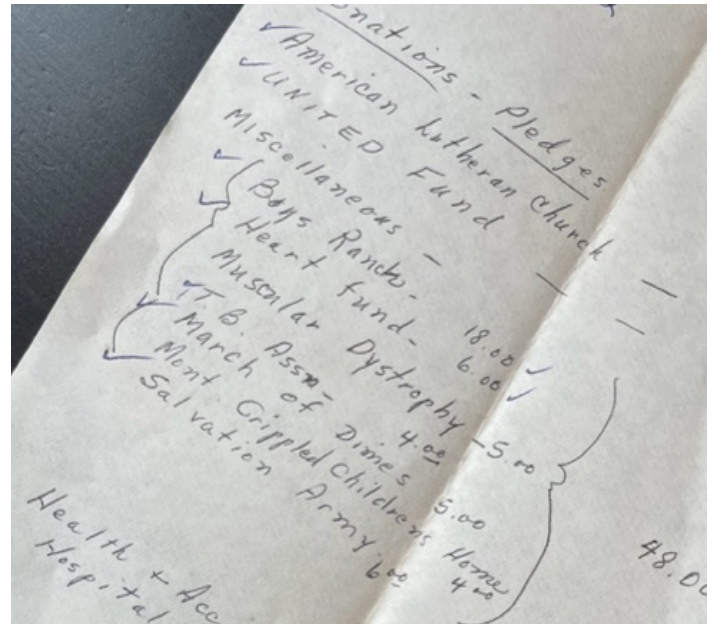 onations - Pledges
American Lutheran Church —
UNITED Fund — —
Miscellaneous -
Boys Ranch - 18.00 ✓
Heart fund - 6.00 ✓
Muscular Dystrophy - 5.00
T.B. Assn - 4.00
March of Dimes 5.00
Mont Crippled Childrens Home 4.00
Salvation Army. 6.00
48.00
Health + Acc
Hospital